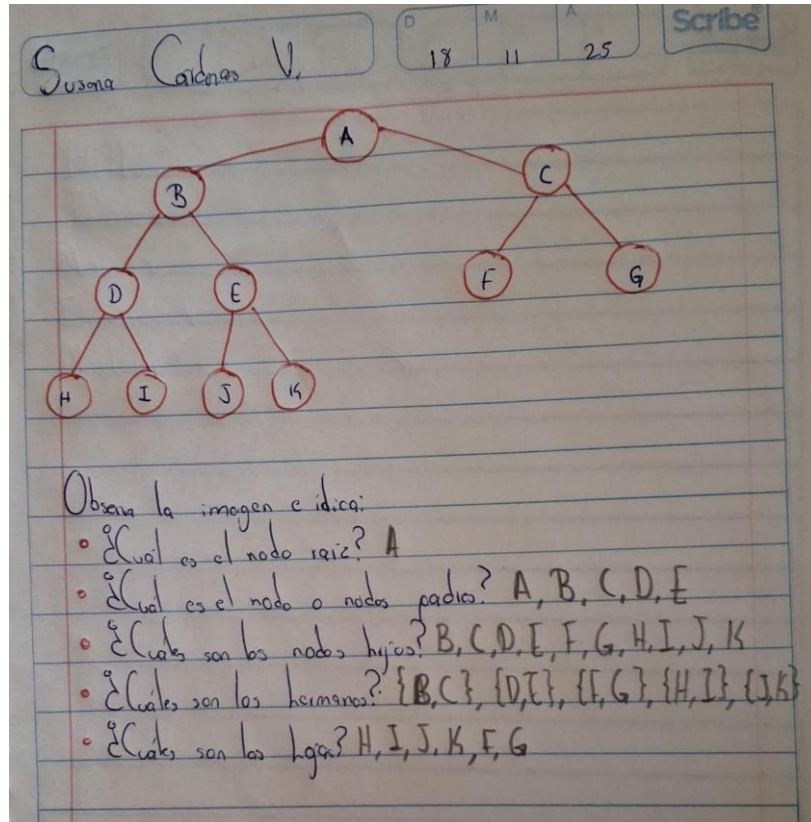 D M A Scribe
Susana Cardenas V. 18 11 25
A
B C
D E F G
H I J K
Observa la imagen e idica:
• ¿Cuál es el nodo raiz? A
• ¿Cuál es el nodo o nodos padres? A, B, C, D, E
• ¿Cuáles son los nodos hijos? B, C, D, E, F, G, H, I, J, K
• ¿Cuáles son los hermanos? {B,C}, {D,E}, {F,G}, {H,I}, {J,K}
• ¿Cuáles son las hojas? H, I, J, K, F, G